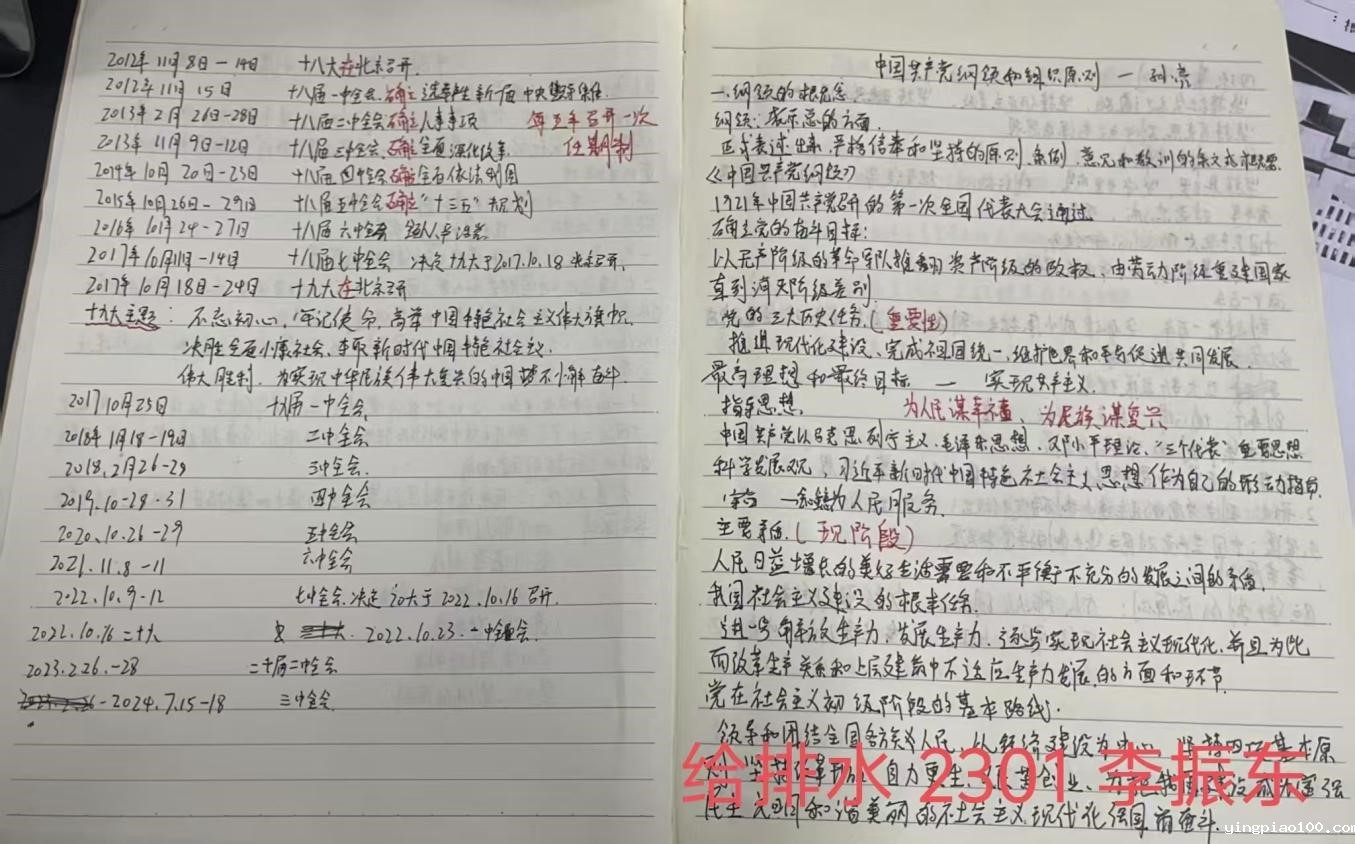 2012年11月8日—14日 十八大在北京召开.
2012年11月15日 十八届一中全会.确立选举产生新一届中央
2013年2月26日-28日 十八届二中全会确立人事事项 每五年召开一次
2013年11月9日-12日 十八届三中全会、确立全面深化改革. 任期制
2014年10月20日-23日 十八届四中全会确立全面依法治国
2015年10月26日-29日 十八届五中全会确立“十三五”规划
2016年10月24-27日 十八届六中全会
2017年10月11日-14日 十八届七中全会 决定十九大于2017.10.18 召开.
2017年10月18日-24日 十九大在北京召开
十九大主题: 不忘初心,牢记使命,高举中国特色社会主义伟大旗帜.
决胜全面小康社会、夺取新时代中国特色社会主义.
伟大胜利.为实现中华民族伟大复兴的中国梦不懈奋斗.
2017 10月25日 十九届一中全会
2018年1月18-19日 二中全会.
2018.2月26-28 三中全会.
2019.10-28-31 四中全会
2020.10.26-29 五中全会
2021.11.8-11 六中全会
2022.10.9-12 七中全会.决定20大于2022.10.16召开.
2022.10.16二十大 2022.10.23.一中全会.
2023.2.26.-28 二十届二中全会
-2024.7.15-18 三中全会.
中国共产党纲领和组织原则 — 孙亮
一.纲领的概念
纲领:表示总的方面.
正式表述出来,严格信奉和坚持的原则、条例、意见和教训的条文或概要.
《中国共产党纲领》
1921年中国共产党召开的第一次全国代表大会通过.
确立党的奋斗目标:
以无产阶级的革命军队推翻资产阶级的政权、由劳动阶级重建国家
直到消灭阶级差别.
党的三大历史任务.(重要性)
推进现代化建设、完成祖国统一、维护世界和平与促进共同发展.
最高理想和最终目标 — 实现共产主义.
指导思想. 为人民谋幸福、为民族谋复兴
中国共产党以马克思列宁主义、毛泽东思想、邓小平理论、“三个代表”重要思想
科学发展观,习近平新时代中国特色社会主义思想作为自己的行动指南.
宗旨 — 为人民服务.
主要矛盾.(现阶段)
人民日益增长的美好生活需要和不平衡不充分的发展之间的矛盾.
我国社会主义建设的根本任务.
进一步解放生产力,发展生产力.逐步实现社会主义现代化,并且为此
而改革生产关系和上层建筑中不适应生产力发展.的方面和环节.
党在社会主义初级阶段的基本路线.
领导和团结全国各族人民、以经济建设为中心、坚持四项基本原
则 坚持改革开放 自力更生、艰苦创业、为把我国建设成为富强
民主文明和谐美丽的社会主义现代化强国而奋斗.
给排水 2301 李振东
yingpiao100.com